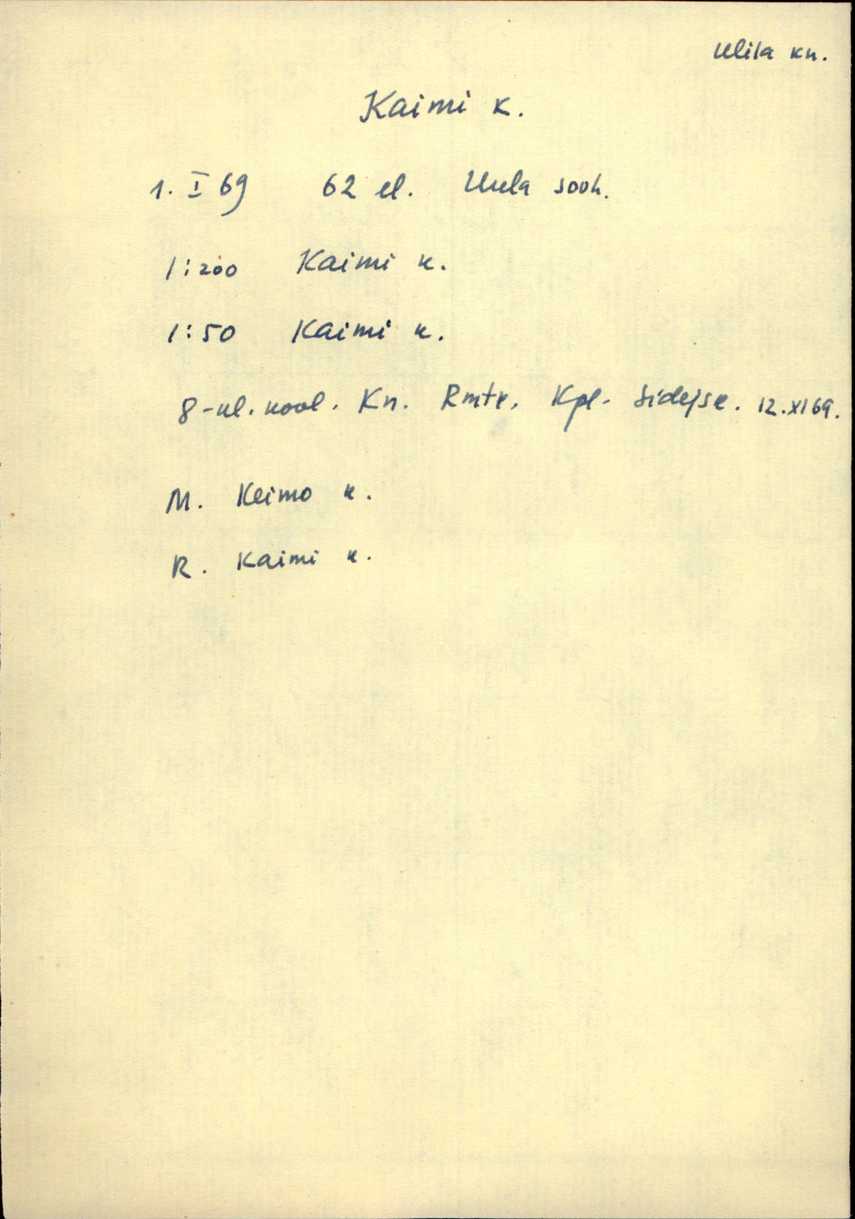 Ulila kn.
Kaimi k.
1. I 69 62 el. Uula sooh.
1:200 Kaimi k.
1:50 Kaimi k.
8-kl. kool. Kn. Rmtk. Kpl. Sidejsk. 12.XI 69.
M. Keimo k.
R. Kaimi k.